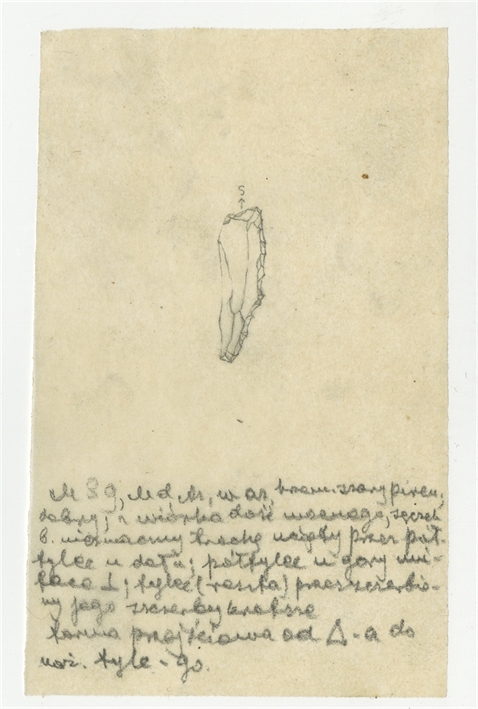 S
M 39, M d Ar, w as, krzem. szary pierw.
dobry; z wiórka dość mocnego, sęczek
b. nieznaczny trochę ucięty przez pół-
tylec u dołu; półtylec u góry
⊥; tylec (reszta) przeszczerbio-
ny jego szczerby krótsze
forma przejściowa od Δ-a do
noż. tylc-go.